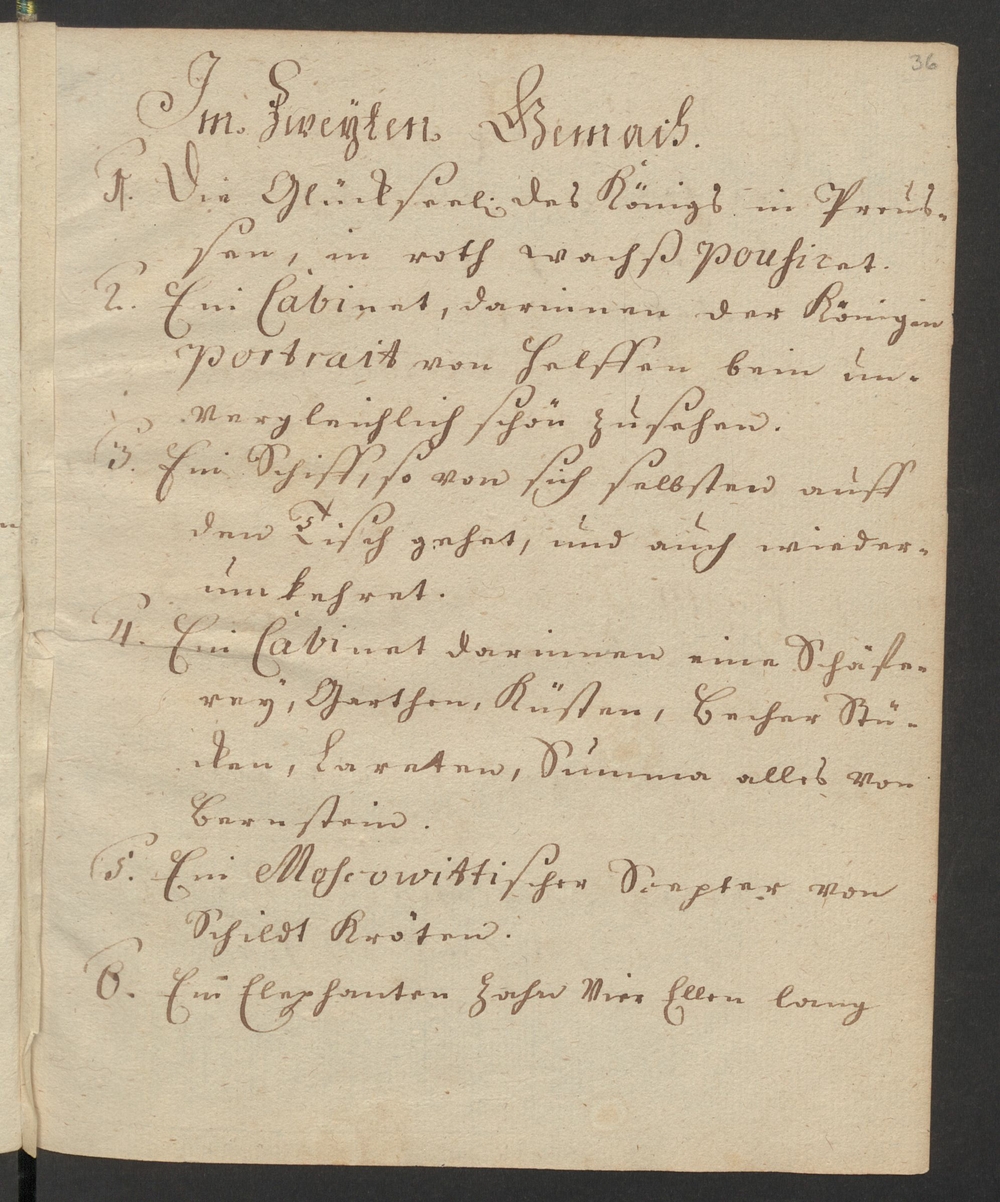 36
Im Zweyten Gemach.
1. Die Glückseel: des Königs in Preus-
sen, in roth wachß pousiret.
2. Ein Cabinet, darinnen der Königin
Portrait von Helffen bein un-
vergleichlich schön zusehen.
3. Ein Schiff, so von sich selbsten auff
den Tisch gehet, und auch wieder-
umkehret.
4. Ein Cabinet darinnen eine Schäffe-
rey, Garthen, Küsten, Becher Stü-
cken, Lareten, Summa alles von
Bernstein.
5. Ein Moscowittischer Scepter von
Schildt Kröten.
6. Ein Elephanten Zahn Vier Ellen lang